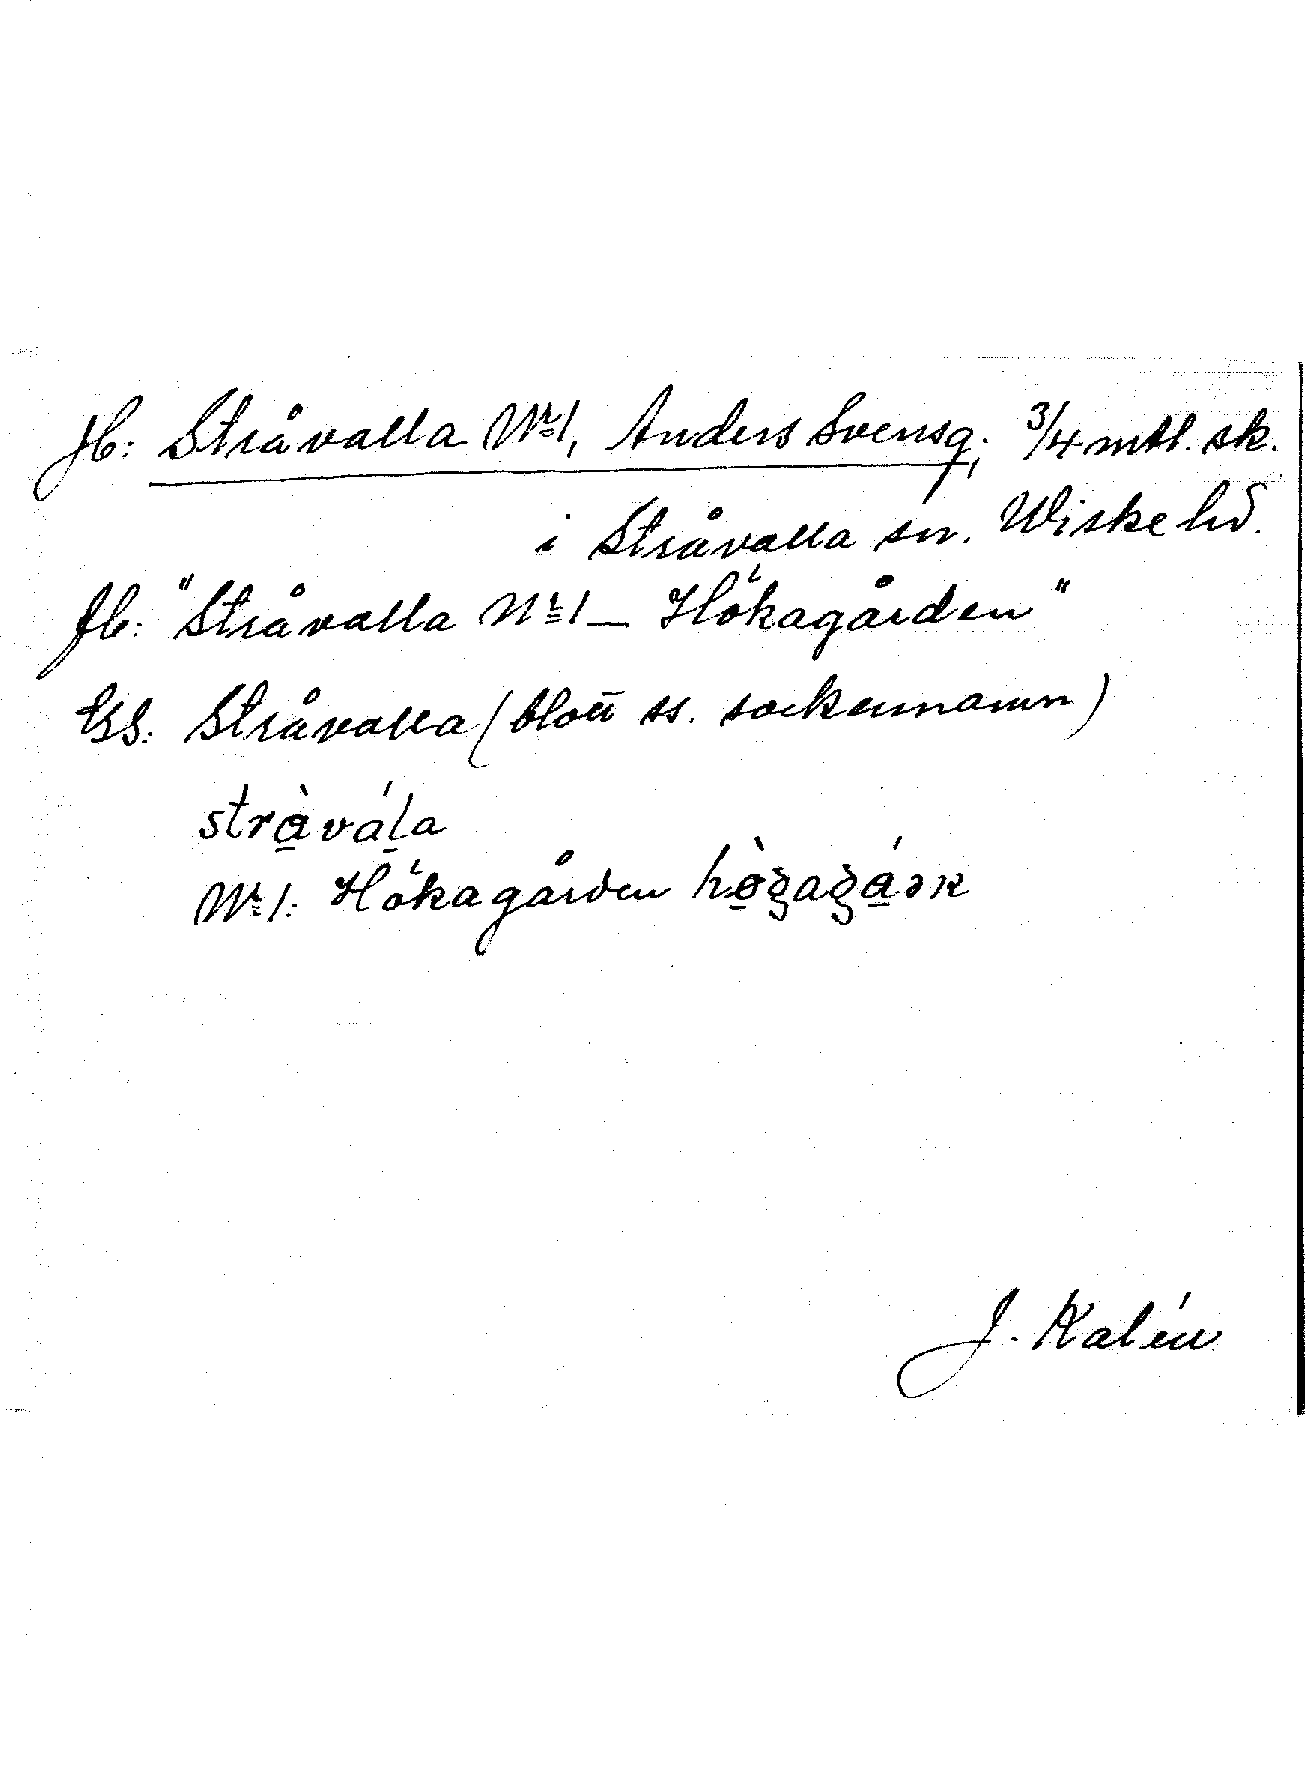 Jb: Stråvalla Nr 1, Anders Svensg. 3/4 mtl. sk.
i Stråvalla sn. Wiske hd.
Jb: "Stråvalla Nr 1 – Hökagården"
GS: Stråvalla (blott ss. sockennamn)
stràvála
Nr 1: Hökagården
J. Kalén